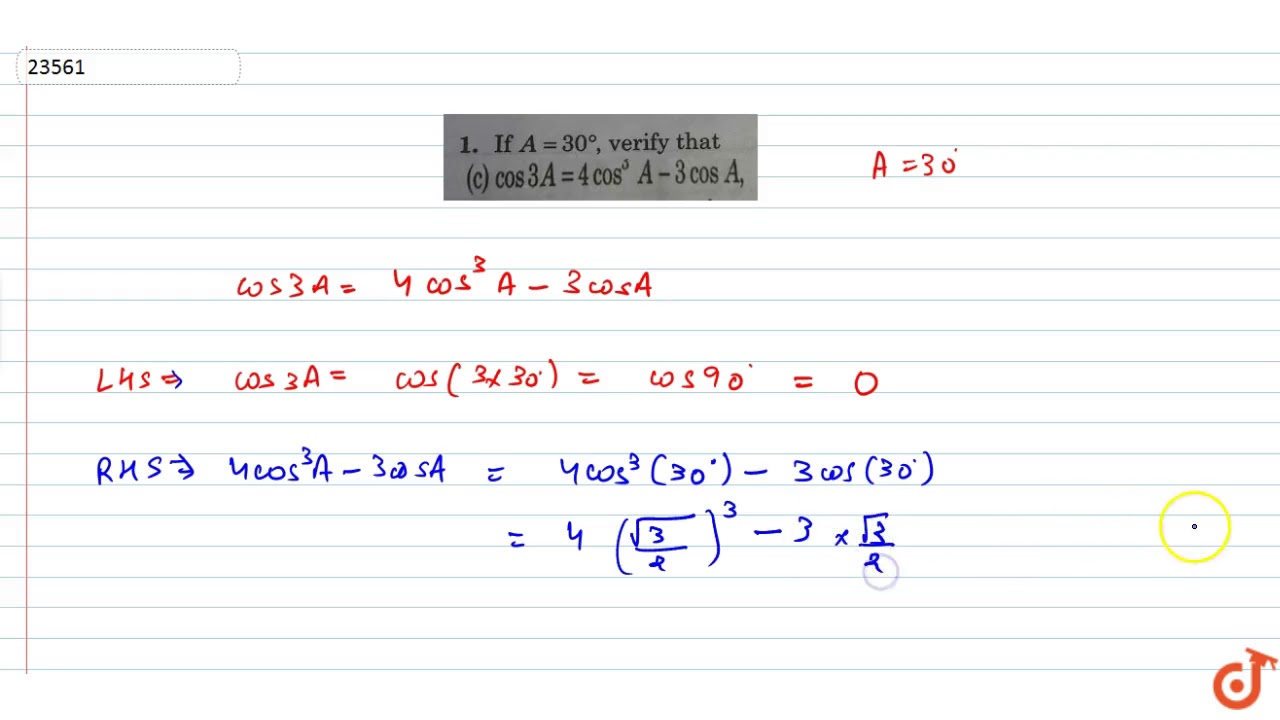 23561
1. If A = 30°, verify that
(c) cos 3A = 4 cos³ A − 3 cos A,
A = 30°
cos3A = 4 cos³ A − 3 cosA
LHS ⇒ cos3A = cos(3×30°) = cos90° = 0
RHS ⇒ 4cos³A − 3cosA = 4cos³(30°) − 3cos(30°)
= 4 (√3/2)³ − 3 × √3/2